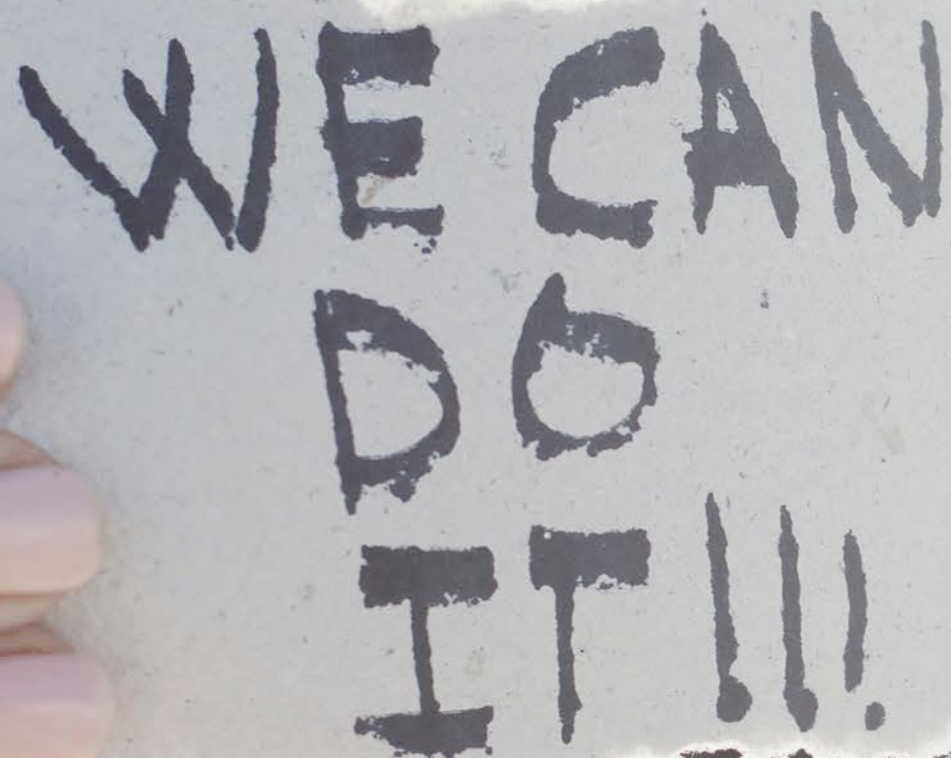 WE CAN
DO
IT!!!